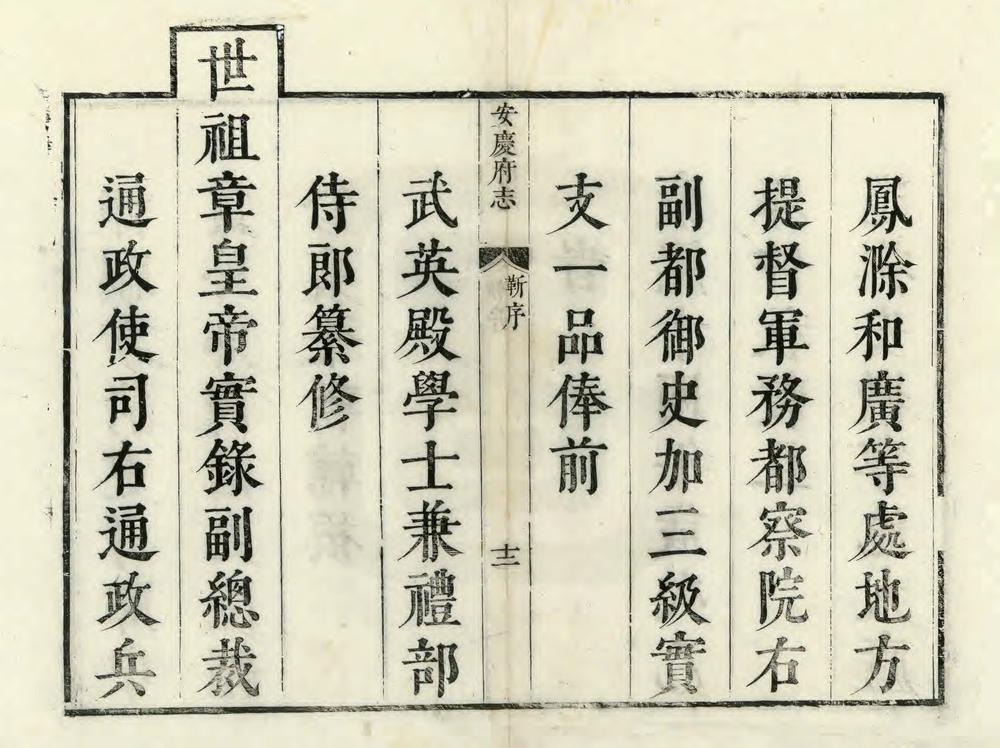 鳳滁和廣等處地方
提督軍務都察院右
副都御史加三級實
支一品俸前
安慶府志
靳序
十二
武英殿學士兼禮部
侍郎纂修
世祖章皇帝實錄副總裁
通政使司右通政兵